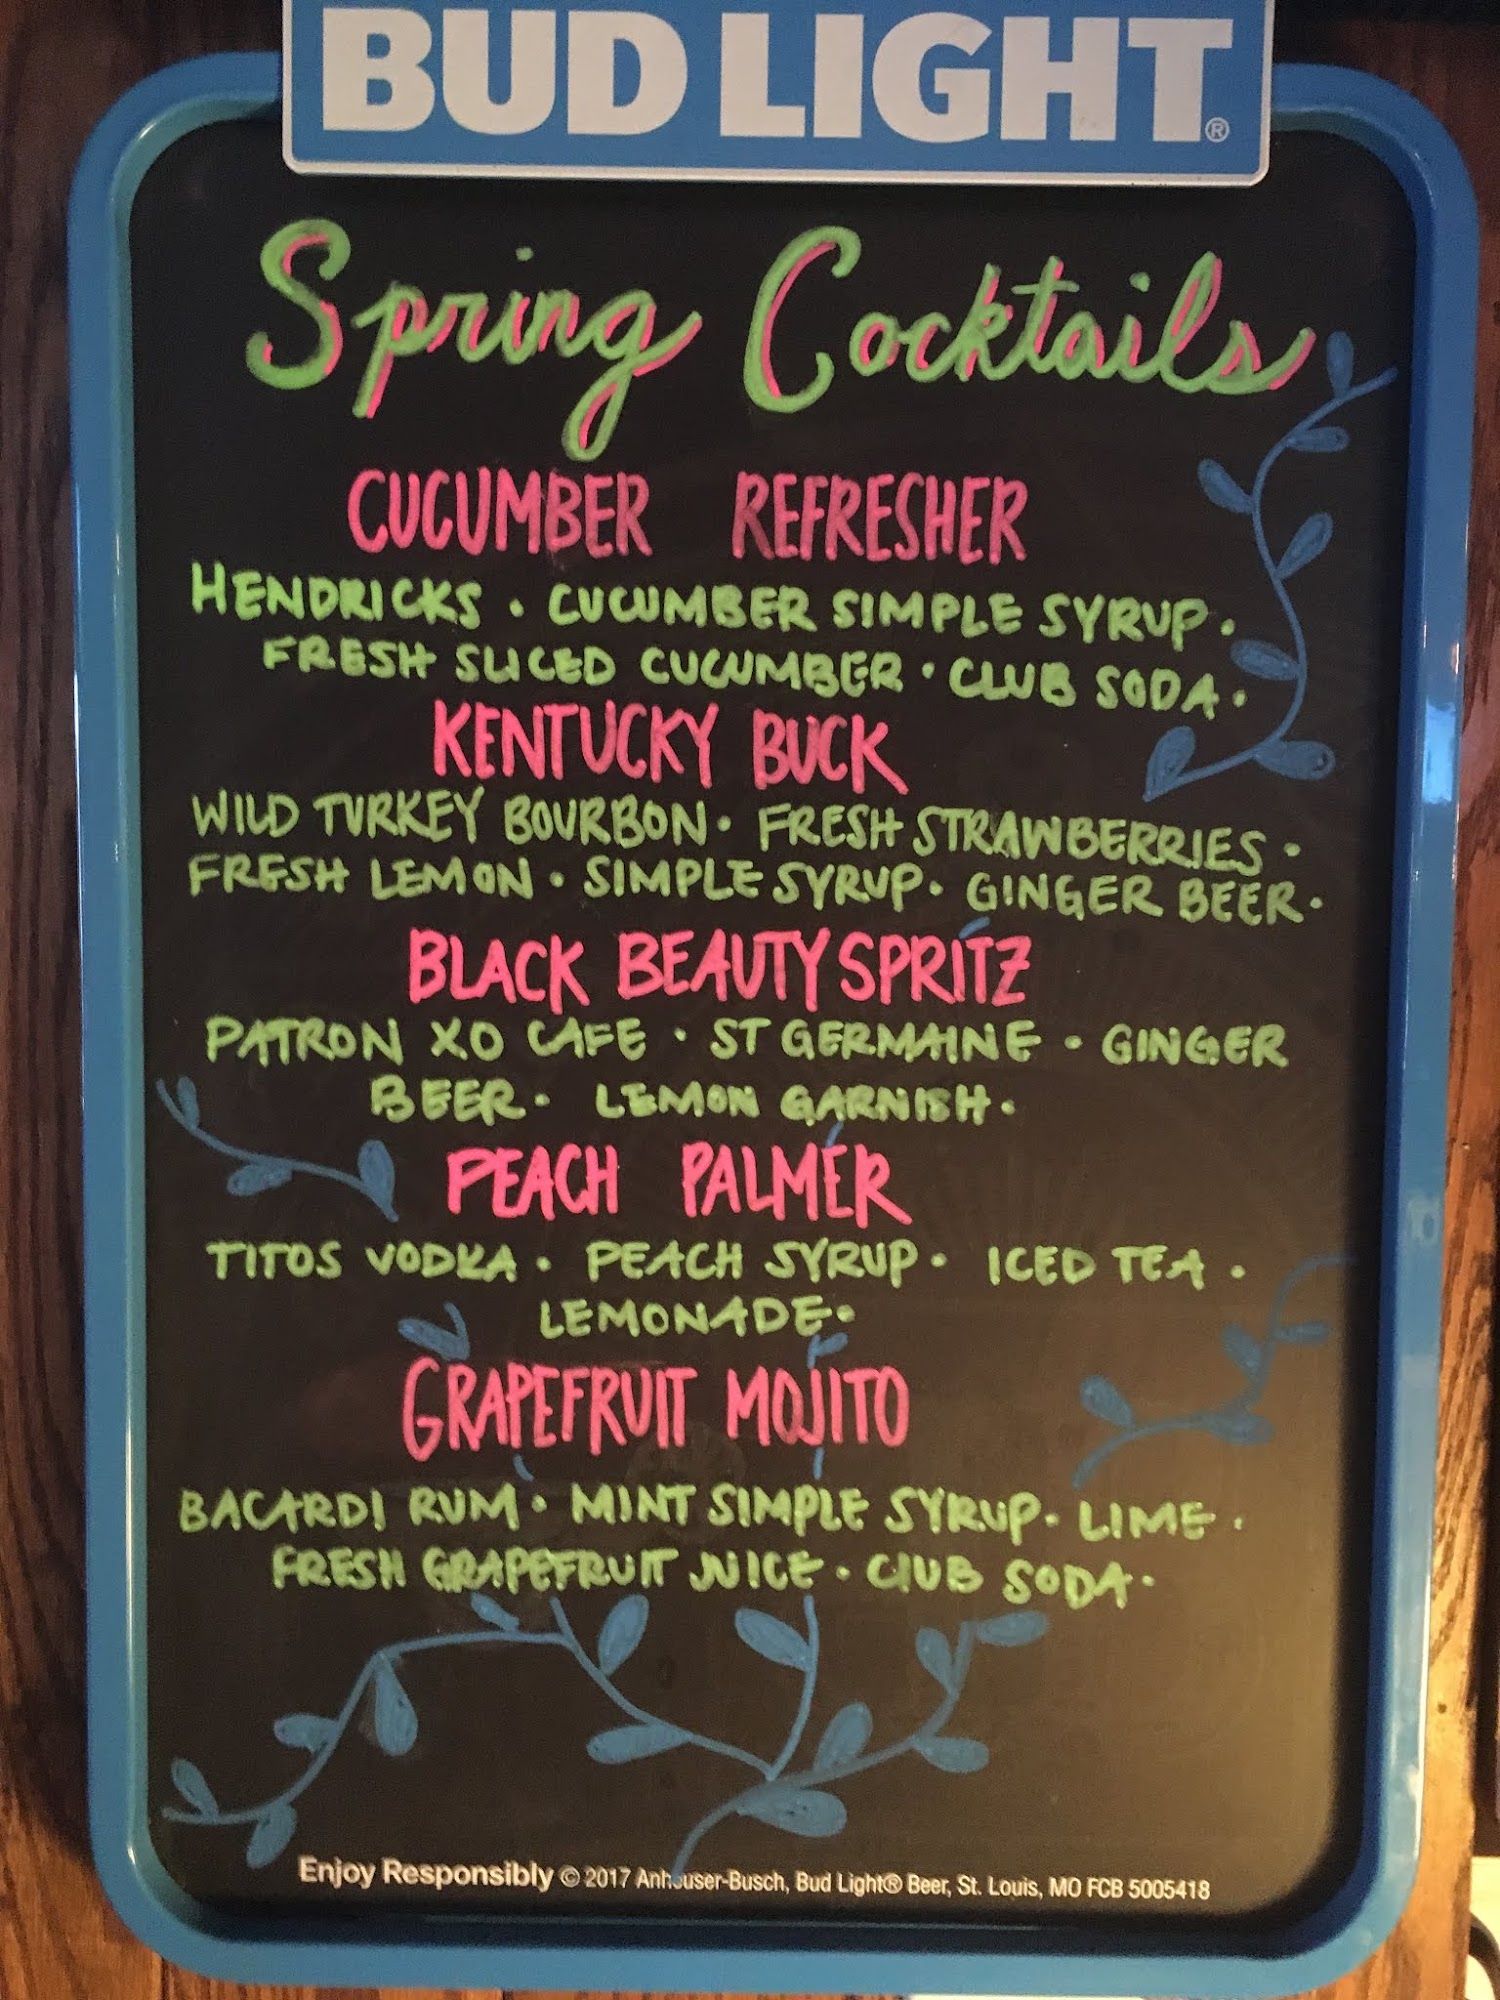 BUD LIGHT®
Spring Cocktails
CUCUMBER REFRESHER
HENDRICKS • CUCUMBER SIMPLE SYRUP •
FRESH SLICED CUCUMBER • CLUB SODA •
KENTUCKY BUCK
WILD TURKEY BOURBON • FRESH STRAWBERRIES •
FRESH LEMON • SIMPLE SYRUP • GINGER BEER •
BLACK BEAUTY SPRITZ
PATRON XO CAFE • ST GERMAINE • GINGER
BEER • LEMON GARNISH •
PEACH PALMER
TITOS VODKA • PEACH SYRUP • ICED TEA •
LEMONADE •
GRAPEFRUIT MOJITO
BACARDI RUM • MINT SIMPLE SYRUP • LIME •
FRESH GRAPEFRUIT JUICE • CLUB SODA •
Enjoy Responsibly © 2017 Anheuser-Busch, Bud Light® Beer, St. Louis, MO FCB 5005418